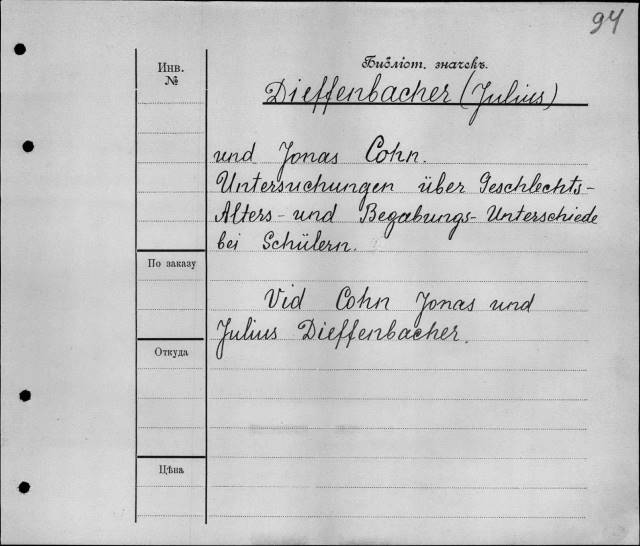 94
Инв.
№
Библіот. значекъ.
Dieffenbacher (Julius)
und Jonas Cohn.
Untersuchungen über Geschlechts-
Alters- und Begabungs-Unterschiede
bei Schülern.
По заказу
Vid Cohn Jonas und
Julius Dieffenbacher.
Откуда
Цѣна